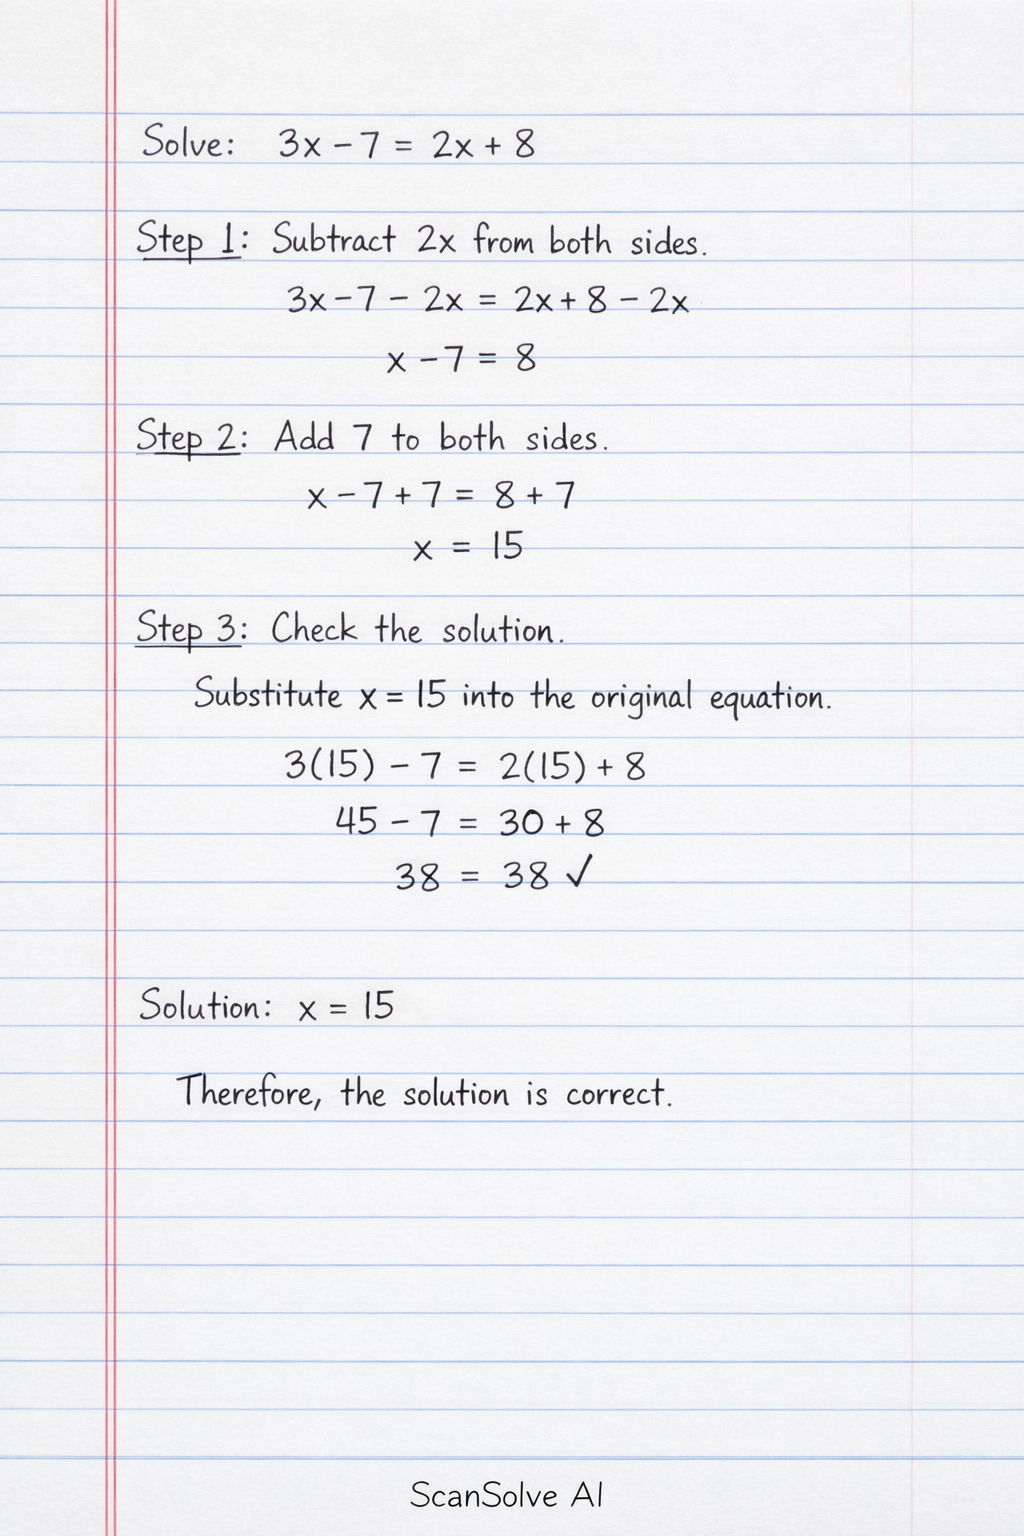 Solve: 3x - 7 = 2x + 8
Step 1: Subtract 2x from both sides.
3x - 7 - 2x = 2x + 8 - 2x
x - 7 = 8
Step 2: Add 7 to both sides.
x - 7 + 7 = 8 + 7
x = 15
Step 3: Check the solution.
Substitute x = 15 into the original equation.
3(15) - 7 = 2(15) + 8
45 - 7 = 30 + 8
38 = 38 ✓
Solution: x = 15
Therefore, the solution is correct.
ScanSolve AI